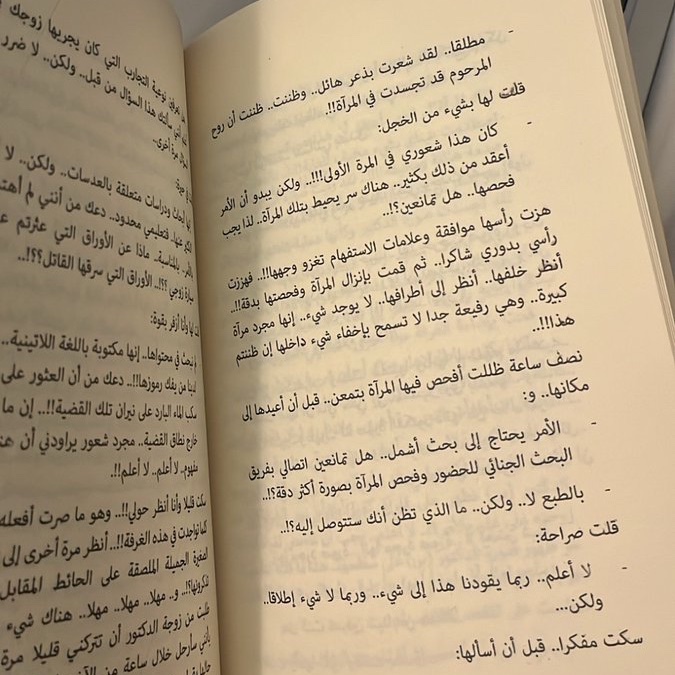 - مطلقا.. لقد شعرت بذعر هائل.. وظننت.. ظننت أن روح
المرحوم قد تجسدت في المرآة!!.
قلت لها بشيء من الخجل:
- كان هذا شعوري في المرة الأولى!!!.. ولكن يبدو أن الأمر
أعقد من ذلك بكثير.. هناك سر يحيط بتلك المرآة.. لذا يجب
فحصها.. هل تمانعين؟!..
هزت رأسها موافقة وعلامات الاستفهام تغزو وجهها!!.. فهززت
رأسي بدوري شاكرا.. ثم قمت بإنزال المرآة وفحصتها بدقة!!..
أنظر خلفها.. أنظر إلى أطرافها.. لا يوجد شيء.. إنها مجرد مرآة
كبيرة.. وهي رفيعة جدا لا تسمح بإخفاء شيء داخلها إن ظننتم
هذا!!..
نصف ساعة ظللت أفحص فيها المرآة بتمعن.. قبل أن أعيدها إلى
مكانها.. و:
- الأمر يحتاج إلى بحث أشمل.. هل تمانعين اتصالي بفريق
البحث الجنائي للحضور وفحص المرآة بصورة أكثر دقة؟!..
- بالطبع لا.. ولكن.. ما الذي تظن أنك ستتوصل إليه؟!..
قلت صراحة:
- لا أعلم.. ربما يقودنا هذا إلى شيء.. وربما لا شيء إطلاقا..
ولكن...
سكت مفكرا.. قبل أن أسألها:
نوعية التجارب التي كان يجريها زوجك
سألتك هذا السؤال من قبل.. ولكن.. لا ضرر
مرة أخرى..
أبحاث ودراسات متعلقة بالعدسات.. ولكن.. لا
عنها.. فتعليمي محدود.. دعك من أنني لم أهتم
بالمناسبة.. ماذا عن الأوراق التي عثرتم
زوجي ؟؟!.. الأوراق التي سرقها القاتل؟؟!..
وأنا أزفر بقوة:
نبحث في محتواها.. إنها مكتوبة باللغة اللاتينية..
من يفك رموزها!!.. دعك من أن العثور على
سكب الماء البارد على نيران تلك القضية!!.. إن ما
خارج نطاق القضية.. مجرد شعور يراودني أن
مفهوم.. لا أعلم.. لا أعلم!!.
سكت قليلا وأنا أنظر حولي!!.. وهو ما صرت أفعله
كلما تواجدت في هذه الغرفة!!.. أنظر مرة أخرى إلى
الصغيرة الجميلة الملصقة على الحائط المقابل
تذكرونها؟!.. و.. مهلا.. مهلا.. مهلا.. هناك شيء
طلبت من زوجة الدكتور أن تتركني قليلا
بأنني سأرحل خلال ساعة من